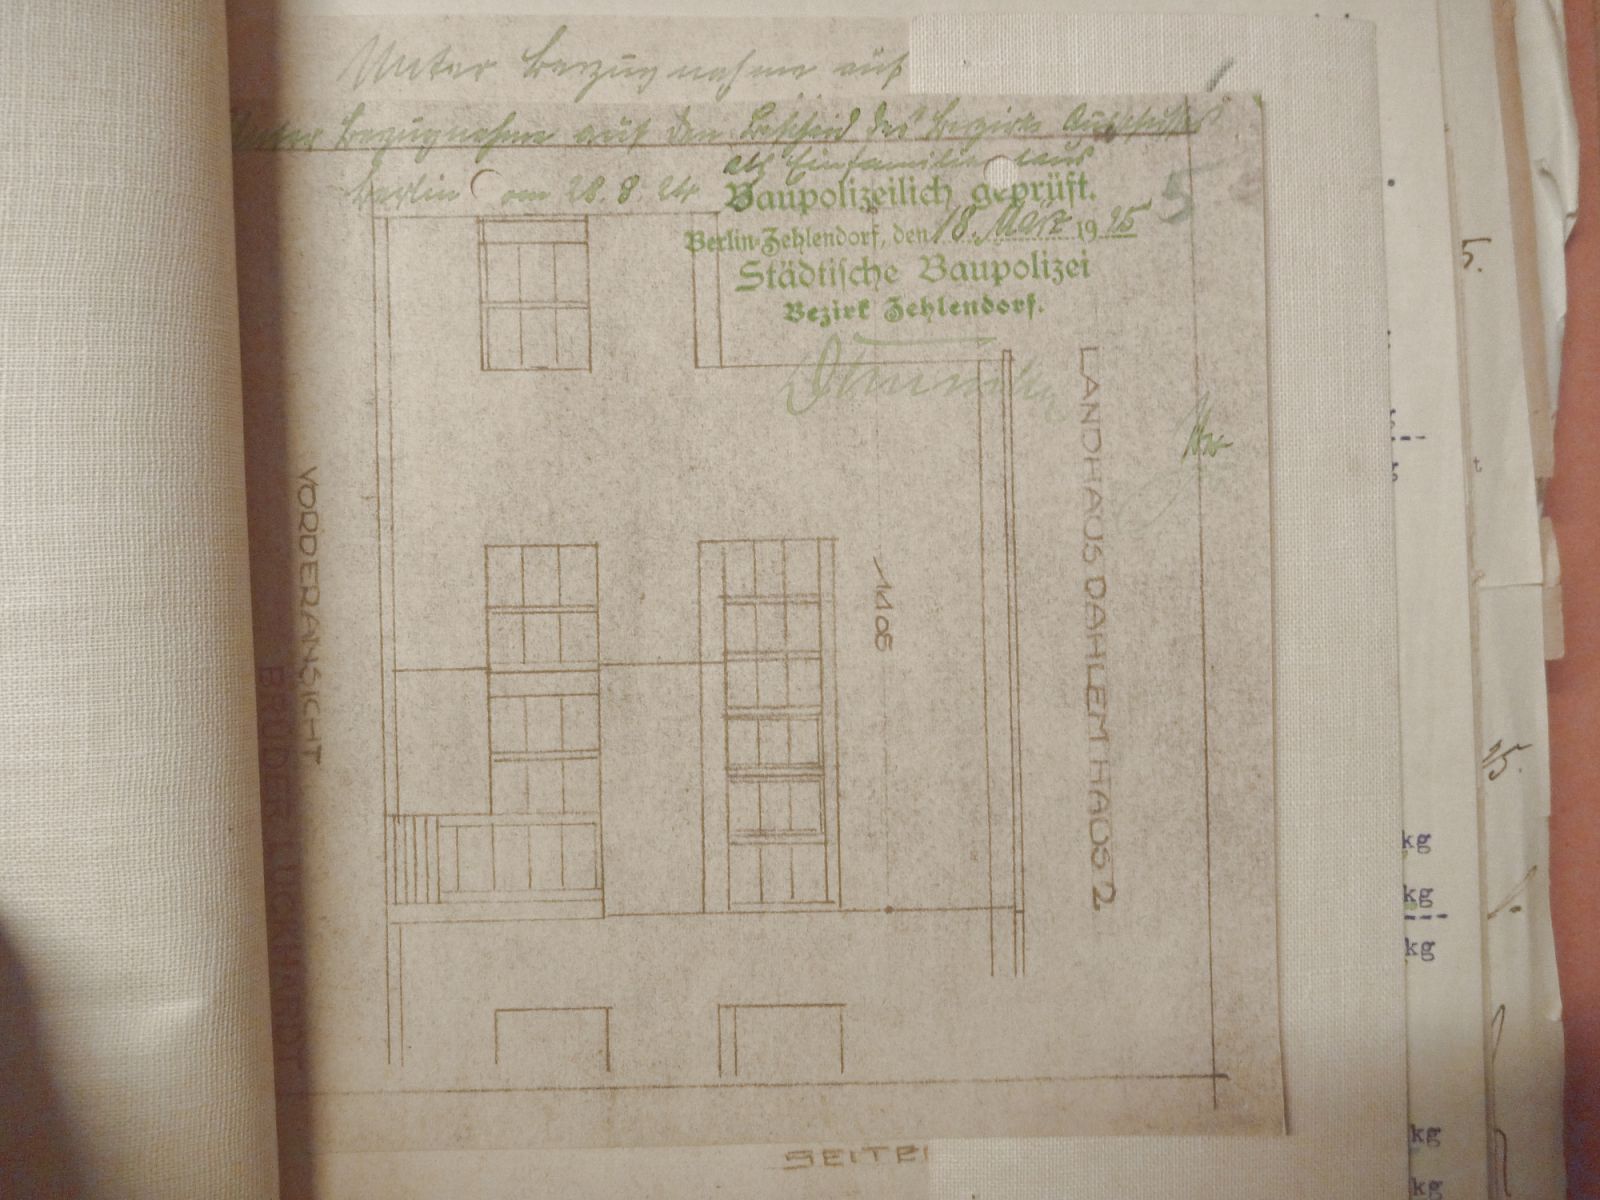 Unter Bezugnahme auf
Unter Bezugnahme auf den Bescheid des Bezirks Ausschusses
Berlin am 28.8.24
als Einfamilienhaus
Baupolizeilich geprüft.
Berlin-Zehlendorf, den 18. März 1925
Städtische Baupolizei
Bezirk Zehlendorf.
5
LANDHAUS DAHLEM HAUS 2
1108
VORDERANSICHT
BRÜDER LUCKHARDT
SEITE
5.
15.
kg
kg
kg
kg
kg